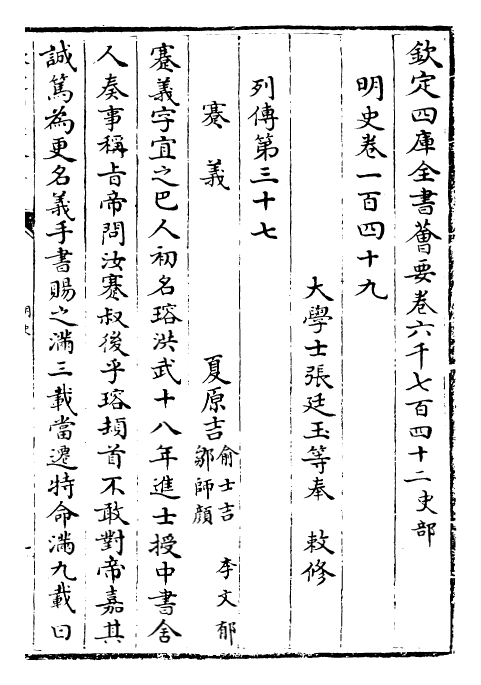 欽定四庫全書薈要卷六千七百四十二史部
明史卷一百四十九
大學士張廷玉等奉　敕修
列傳第三十七
蹇義　　　夏原吉 俞士吉　李文郁
鄒師顔
蹇義字宜之巴人初名瑢洪武十八年進士授中書舍
人奏事稱旨帝問汝蹇叔後乎瑢頓首不敢對帝嘉其
誠篤為更名義手書賜之滿三載當遷特命滿九載曰
明史